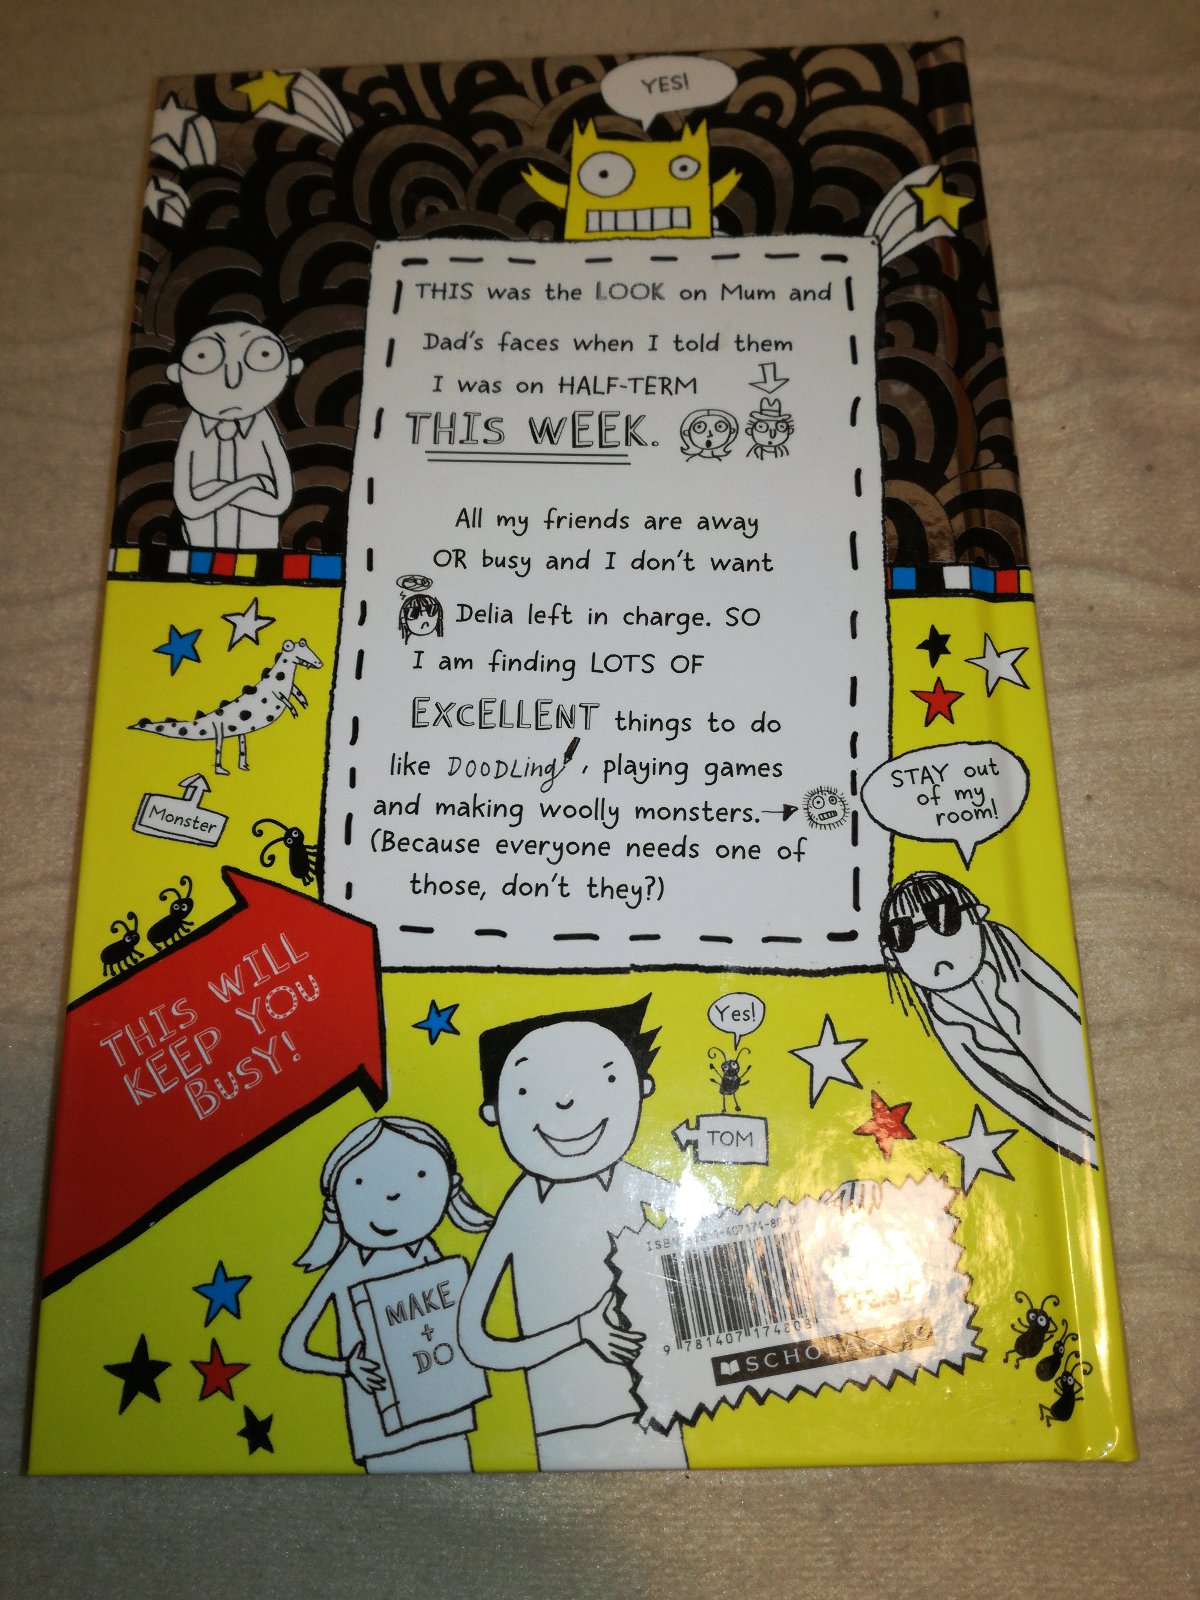 YES!
THIS was the LOOK on Mum and
Dad's faces when I told them
I was on HALF-TERM
THIS WEEK.
All my friends are away
OR busy and I don't want
Delia left in charge. SO
I am finding LOTS OF
EXCELLENT things to do
like DOODLing, playing games
and making woolly monsters.
(Because everyone needs one of
those, don't they?)
Monster
STAY out
of my
room!
THIS WILL
KEEP YOU
BUSY!
Yes!
TOM
MAKE
+
DO
ISBN
9 781407 174808
SCHOLASTIC